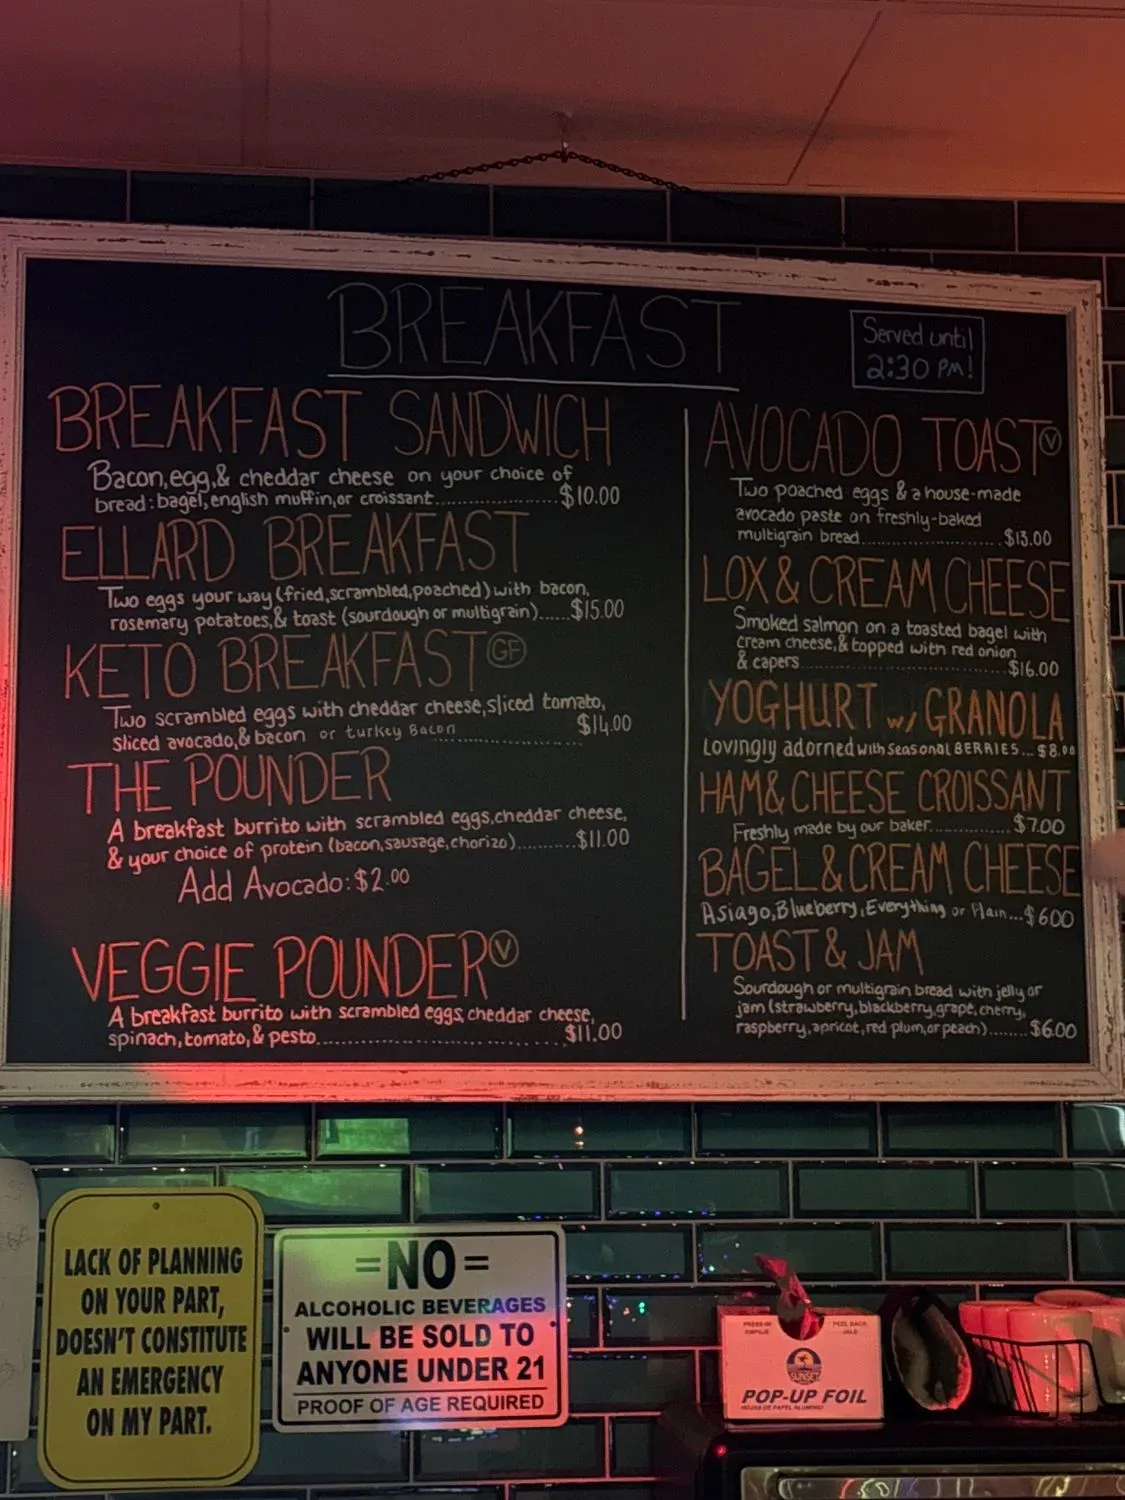 BREAKFAST
Served until
2:30 PM!
BREAKFAST SANDWICH
Bacon, egg, & cheddar cheese on your choice of
bread: bagel, english muffin, or croissant................$10.00
ELLARD BREAKFAST
Two eggs your way (fried, scrambled, poached) with bacon,
rosemary potatoes, & toast (sourdough or multigrain)......$15.00
KETO BREAKFAST GF
Two scrambled eggs with cheddar cheese, sliced tomato,
sliced avocado, & bacon or turkey Bacon ................ $14.00
THE POUNDER
A breakfast burrito with scrambled eggs, cheddar cheese,
& your choice of protein (bacon, sausage, chorizo)..........$11.00
Add Avocado: $2.00
VEGGIE POUNDER V
A breakfast burrito with scrambled eggs, cheddar cheese,
spinach, tomato, & pesto................................$11.00
AVOCADO TOAST V
Two poached eggs & a house-made
avocado paste on freshly-baked
multigrain bread....................$13.00
LOX & CREAM CHEESE
Smoked salmon on a toasted bagel with
cream cheese, & topped with red onion
& capers................................$16.00
YOGHURT w/ GRANOLA
Lovingly adorned with seasonal BERRIES... $8.00
HAM & CHEESE CROISSANT
Freshly made by our baker................$7.00
BAGEL & CREAM CHEESE
Asiago, Blueberry, Everything or Plain...$6.00
TOAST & JAM
Sourdough or multigrain bread with jelly or
jam (strawberry, blackberry, grape, cherry,
raspberry, apricot, red plum, or peach).......$6.00
LACK OF PLANNING
ON YOUR PART,
DOESN'T CONSTITUTE
AN EMERGENCY
ON MY PART.
=NO=
ALCOHOLIC BEVERAGES
WILL BE SOLD TO
ANYONE UNDER 21
PROOF OF AGE REQUIRED
PRESS-IN
EMPUJE
PEEL BACK
JALE
SUNSET
POP-UP FOIL
HOJAS DE PAPEL ALUMINIO